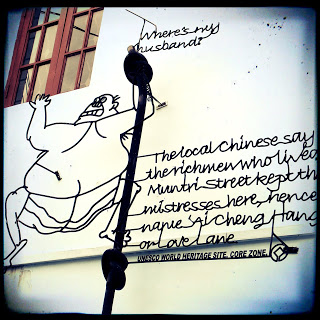 Where's my
husband?
The local Chinese say
the rich men who lived
Muntri Street kept th
mistresses here, hence
name 'Ai Cheng Hang
or Love Lane.
UNESCO WORLD HERITAGE SITE. CORE ZONE.